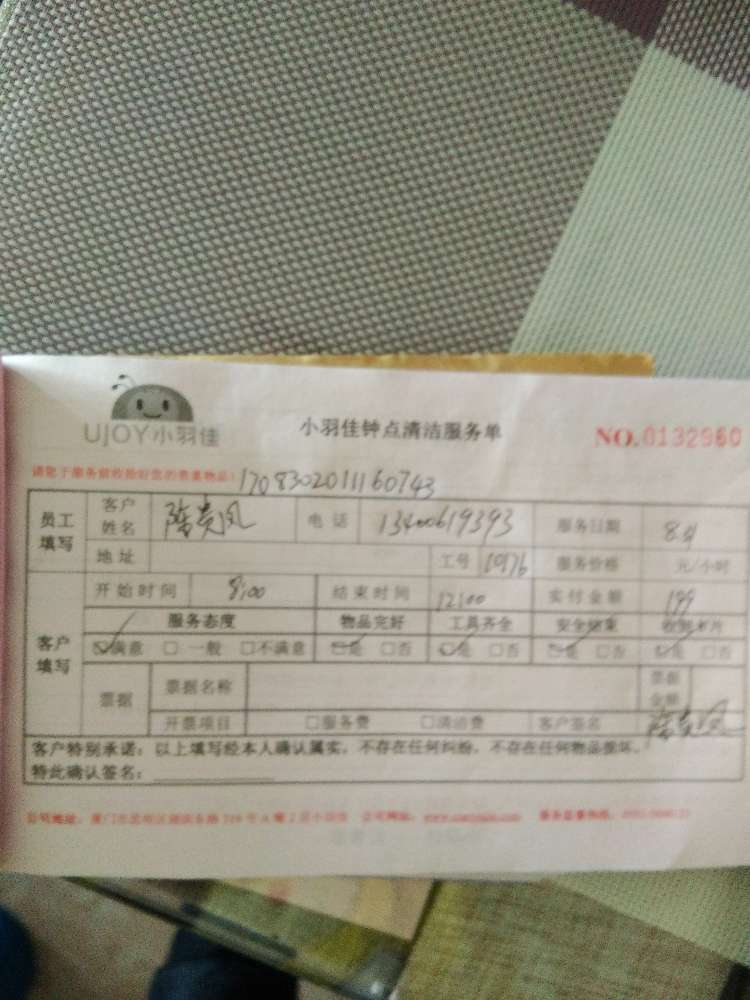 UJOY小羽佳
小羽佳钟点清洁服务单
NO.0132960
请您于服务前收拾好您的贵重物品!
1708302011160743
员工填写 客户姓名 陈 凤 电话 13400619393 服务日期
地址 工号 10976 服务价格 元/小时
客户填写 开始时间 8:00 结束时间 12:00 实付金额 199
服务态度 物品完好 工具齐全 安全结束
满意 一般 不满意 是 否 是 否 是 否 是 否
票据 票据名称 票据金额
开票项目 服务费 清洁费 客户签名
客户特别承诺：以上填写经本人确认属实，不存在任何纠纷，不存在任何物品损坏。
特此确认签名：
公司地址：厦门市